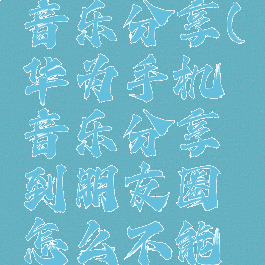 音乐分享(
华为手机
音乐分享
到朋友圈
怎么不能